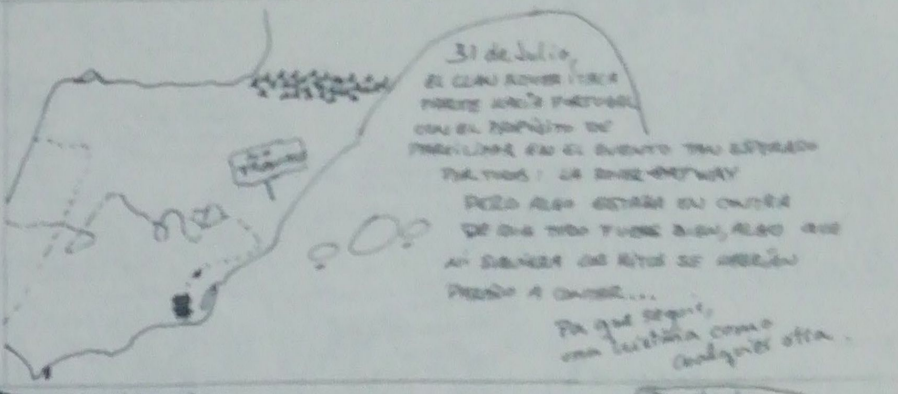 31 de Julio,
EL CLAN ROVER ITACA
PARTE HACIA PORTUGAL
CON EL PROPÓSITO DE
PARTICIPAR EN EL EVENTO TAN ESPERADO
POR TODOS: LA ROVER
PERO ALGO ESTABA EN CONTRA
DE QUE TODO FUERA BIEN, ALGO QUE
NI SIQUIERA LOS MITOS SE HABRÍAN
PARADO A CONTAR...
Pa que seguir,
una historia como
cualquier otra.